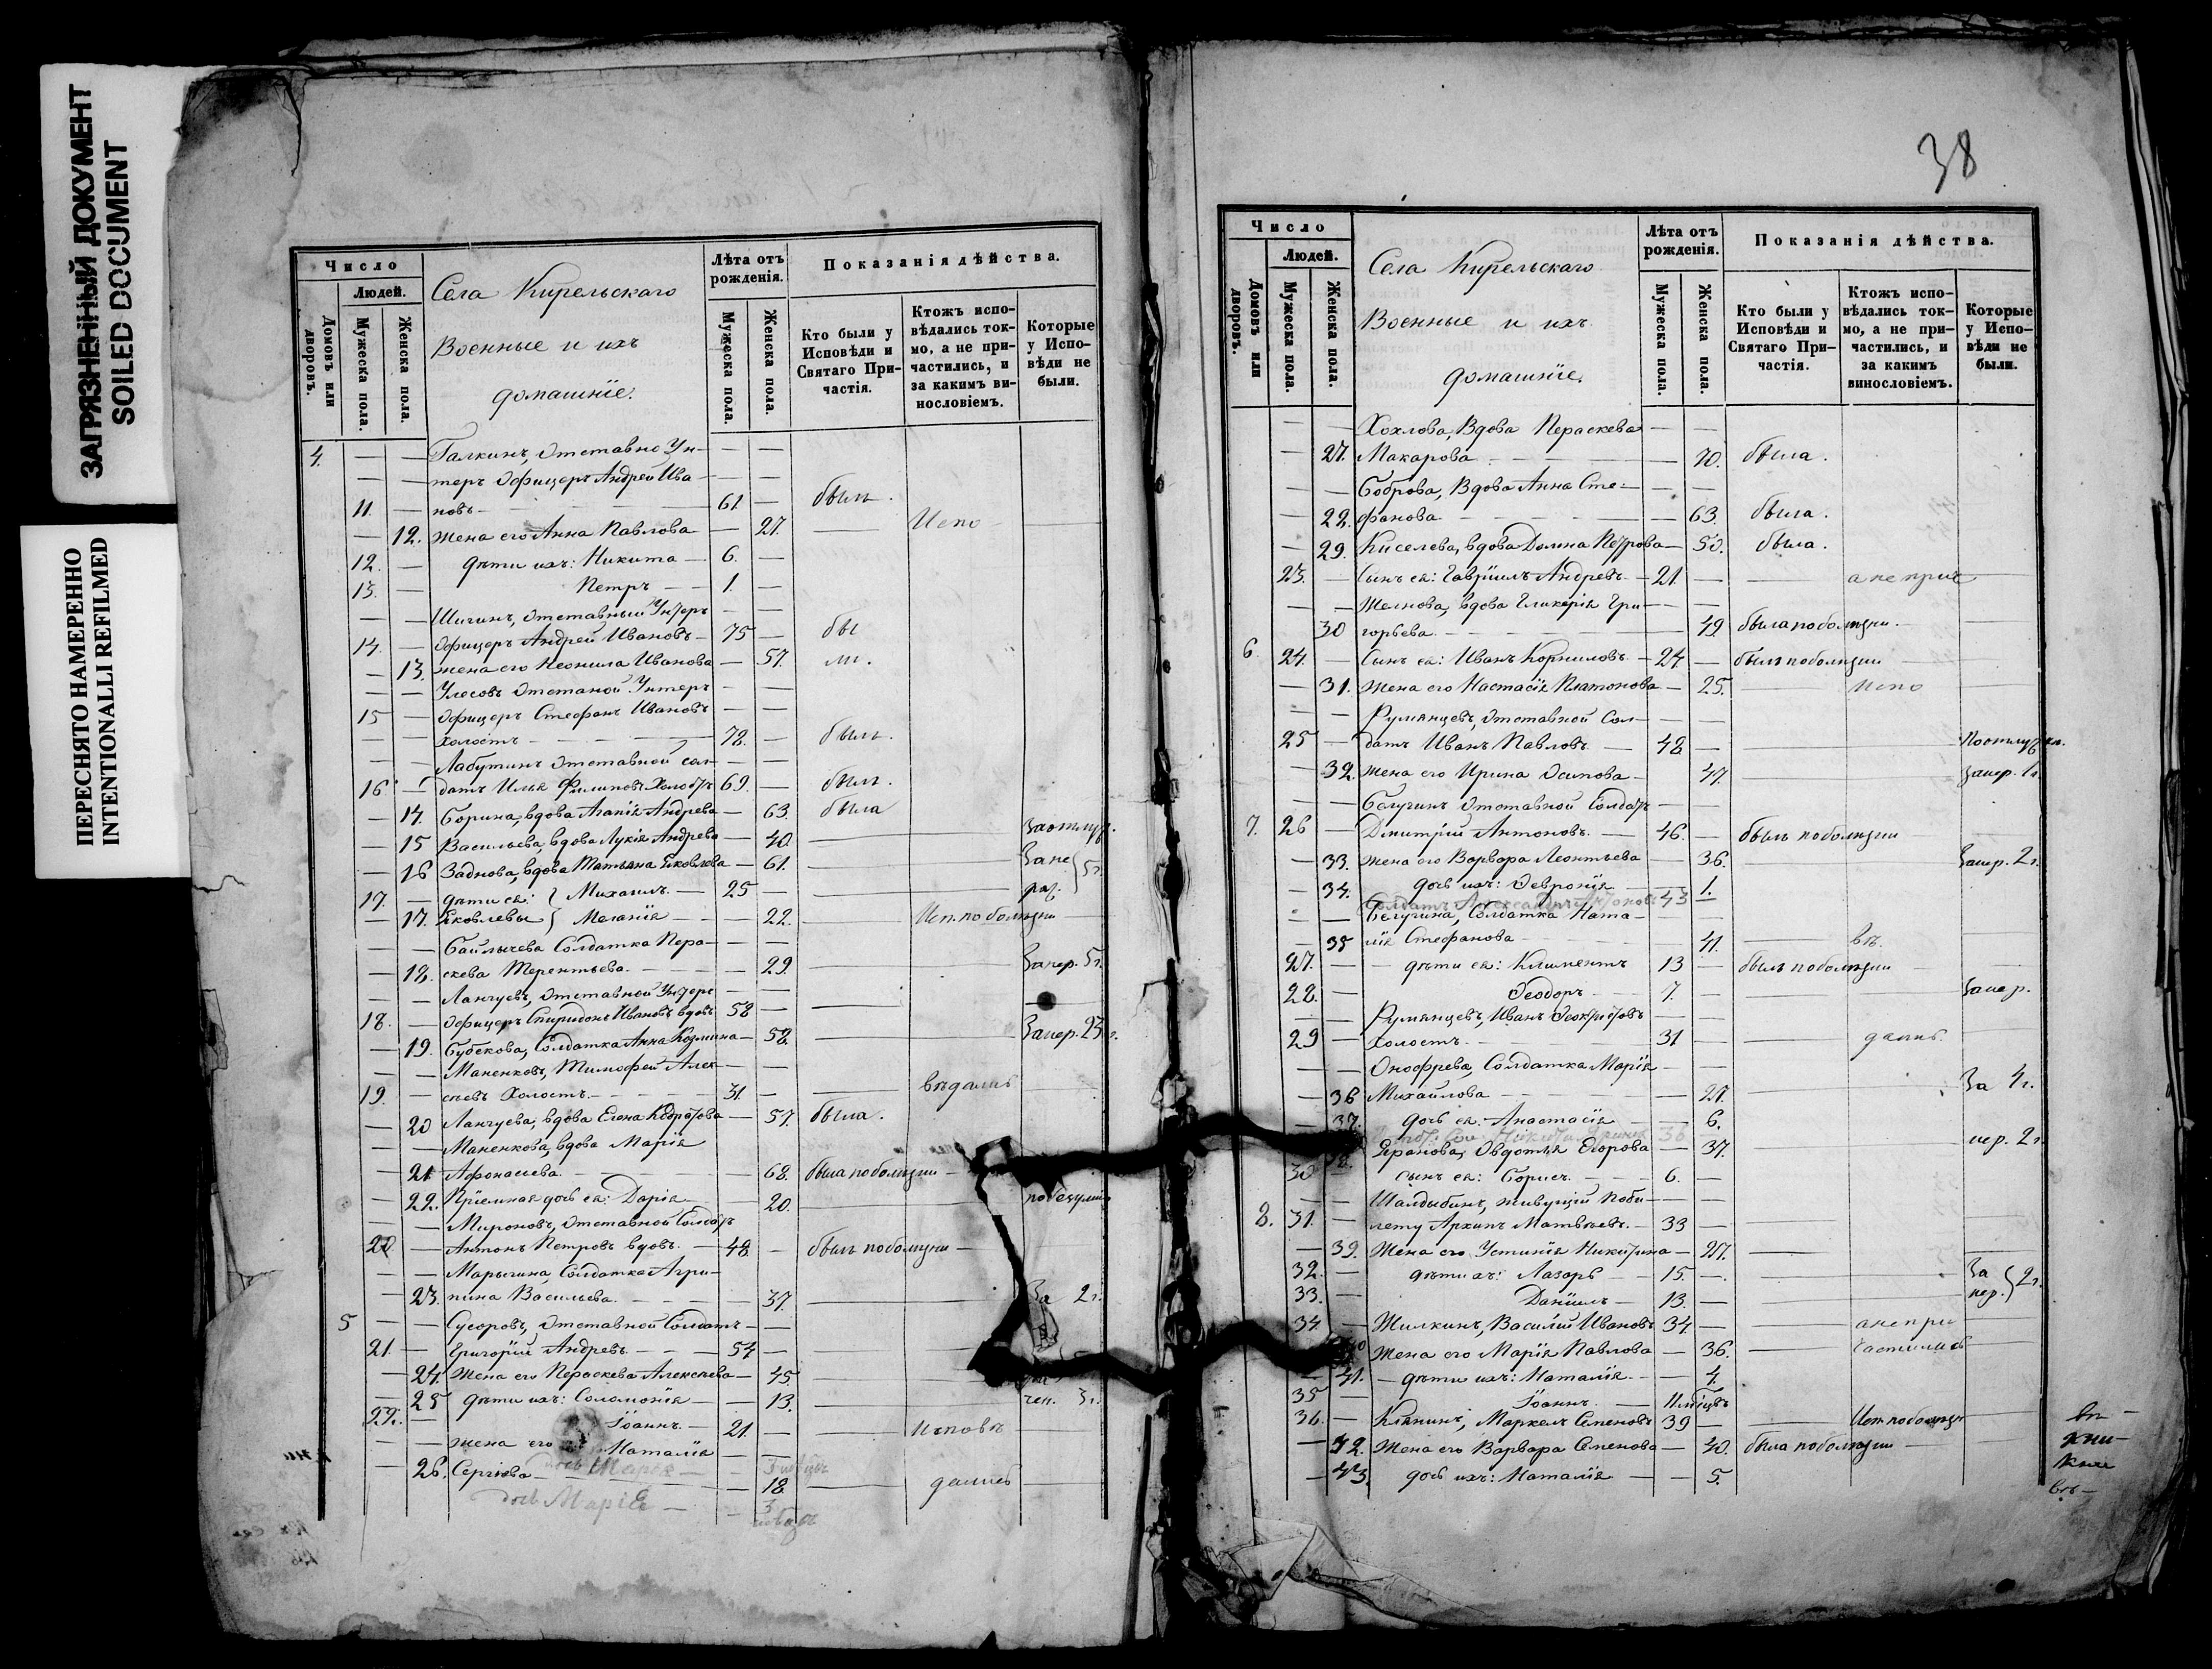 ЗАГРЯЗНЕННЫЙ ДОКУМЕНТ
SOILED DOCUMENT
ПЕРЕСНЯТО НАМЕРЕННО
INTENTIONALLI REFILMED
Число
Людей.
Домовъ или дворовъ.
Мужеска пола.
Женска пола.
Села Кирельскаго
Военные и ихъ
домашніе.
Лѣта отъ рожденія.
Мужеска пола.
Женска пола.
Показанія дѣйства.
Кто были у Исповѣди и Святаго При-частія.
Ктожъ испо-вѣдались ток-мо, а не при-частились, и за какимъ ви-нословіемъ.
Которые у Испо-вѣди не были.
4. — — Галкинъ, Отставно Ун- — —
— — теръ Офицеръ Андрей Ива- — —
11. — новъ — 61. — былъ.
— 12. жена его Анна Павлова — 27. — Испо —
12. — дѣти ихъ: Никита — 6. —
13. — Петръ — 1. —
— — Шигинъ, Отставный Унтеръ — —
14. — Офицеръ Андрей Ивановъ — 75 — бы
— 13. жена его Неонила Иванова — 57. ли.
— — Улесовъ Отставной Унтеръ — —
15 — Офицеръ Стефанъ Ивановъ — —
— — Холостъ — 78. — былъ.
— — Лабутинъ Отставной сол- — —
16 — датъ Илья Филиповъ Холостъ 69. — былъ.
— 14. Борина, вдова Агапія Андрева — 63. была
— 15 Васильева, вдова Лукія Андрева — 40. — Заотлуч.
— 16 Заднова, вдова Татьяна Яковлева — 61. — Зане
17. — дѣти ея: Михаилъ — 25 — рад. 5 г.
— 17. Яковлевы Меланія — 22. — Исп. по болѣзни
— — Солдатка Пера- — —
— 18. скева Терентьева — 29. — Занер. 5 г.
— — Лангуевъ, Отставной Унтеръ — —
18. — Офицеръ Спиридонъ Ивановъ вдовъ 58 —
— 19. Бубекова, Солдатка Анна Козмина — 58. — Занер. 23 г.
— — Маненковъ, Тимофей Алек- — —
19. — сѣевъ Холостъ — 31. — вѣдались
— 20 Лангуева, вдова Елена — 57. была.
— — Маненкова, вдова Марія
— 21 Афонасьева — 68. была по болѣзни —
— 22. Пріемная дочь ея: Дарія — 20. —
— — Мироновъ, Отставной Солдатъ
20 — Антонъ Петровъ вдовъ — 48. — былъ по болѣзни —
— — Марычина, Солдатка Агри-
— 23. пина Васильева — 37. — За 2 г.
5 — — Сусоровъ, Отставной Солдатъ — —
21. — Григорій Андревъ — 54 —
— 24. Жена его Пераскева Алексѣева — 45.
— 25 дѣти ихъ: Соломонія — 13. — 3 г.
22. — Іоаннъ — 21. — Исповѣ
— — жена его Наталія — —
— 26. Сергіева — 18. — дались
дочь Марія —
38
Число
Людей.
Домовъ или дворовъ.
Мужеска пола.
Женска пола.
Села Кирельскаго
Военные и ихъ
домашніе.
Лѣта отъ рожденія.
Мужеска пола.
Женска пола.
Показанія дѣйства.
Кто были у Исповѣди и Святаго При-частія.
Ктожъ испо-вѣдались ток-мо, а не при-частились, и за какимъ винословіемъ.
Которые у Испо-вѣди не были.
— — Хохлова, Вдова Пераскева — —
— 27. Макарова — 70. была.
— — Боброва, Вдова Анна Сте- — —
— 28. фанова — 63. была.
— 29. Киселева, вдова Домна Петрова — 50. была.
23. — Сынъ ея: Гавріилъ Андревъ — 21. — а не прич
— — вдова Гликерія Гри- — —
30 горьева — 49 была по болѣзни —
6. 24. — Сынъ ея: Иванъ Корниловъ — 24. — былъ по болѣзни
— 31. Жена его Настасія Платонова — 25. — испо
— — Румянцевъ, Отставной Сол- — —
25 — датъ Иванъ Павловъ — 48 —
— 32. Жена его Ирина Осипова — 47. — Занер. 1 г.
— — Отставной Солдатъ — —
7. 26 — Дмитрій Антоновъ — 46. — былъ по болѣзни
— 33. жена его Варвара Леонтьева — 36. — Занер. 2 г.
— 34. дочь ихъ: Февронія — 1.
Солдатъ Александръ Антоновъ 43
— — Белугина, Солдатка Ната-
— 35 лія Стефанова — 41. — вѣ.
27. — дѣти ея: Климентъ 13 — былъ по болѣзни
28. — Ѳеодоръ — 7. — Занер.
— — Румянцевъ, Иванъ — —
29 — Холостъ — 31 — дались.
— — Онофрева, Солдатка Марія —
— 36 Михайлова — 27. — За 4 г.
— 37. дочь ея: Анастасія — 6.
38. Евдотья Егорова — 37. — нер. 2 г.
30 — сынъ ея: Борисъ — 6. —
— — Шалдыбинъ, живущій поби- — —
8. 31. — лету Архипъ Матвѣевъ — 33 —
— 39. Жена его Устинія Никитина — 27. —
32. — дѣти ихъ: Лазарь — 15. — За
33. — Даніилъ — 13. — нер. 2 г.
34 — Жилкинъ, Василій Ивановъ 34. — а не при
40 Жена его Марія Павлова — 36. — частились
— 41. — дѣти ихъ: Наталія — 4.
35 — Іоаннъ — 11 мѣсцъ
36. — Маркелъ Семеновъ 39 — Исп. по болѣзн
— 42. Жена его Варвара Семенова — 40. была по болѣзни —
— 43. дочь ихъ: Наталія — 5.